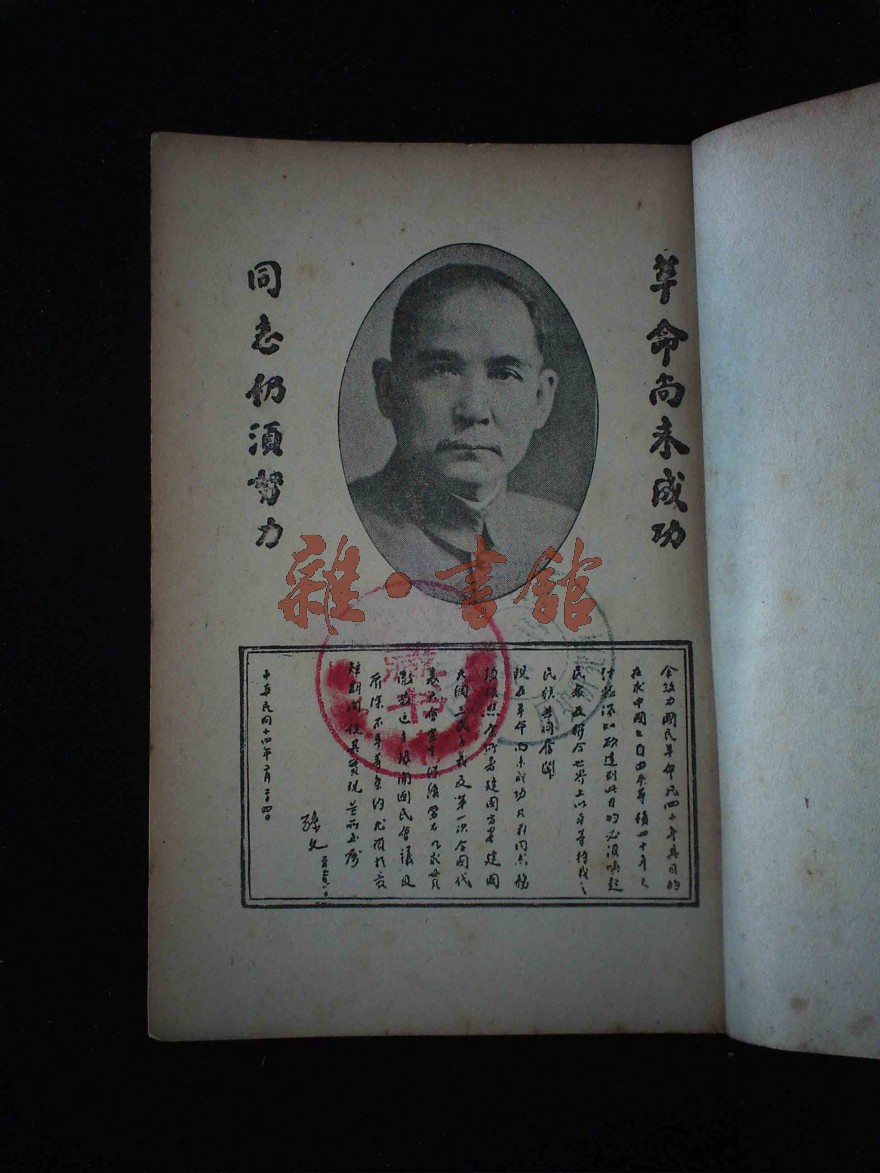 革命尚未成功
同志仍須努力
雜·書館
藏書
余致力國民革命凡四十年其目的
在求中國之自由平等積四十年之
經驗深知欲達到此目的必須喚起
民衆及聯合世界上以平等待我之
民族共同奮鬪
現在革命尚未成功凡我同志務
須依照余所著建國方略建國
大綱三民主義及第一次全國代
表大會宣言繼續努力以求貫
徹最近主張開國民會議及
廢除不平等條約尤須於最
短期間促其實現是所至囑
孫文
中華民國十四年二月二十四日